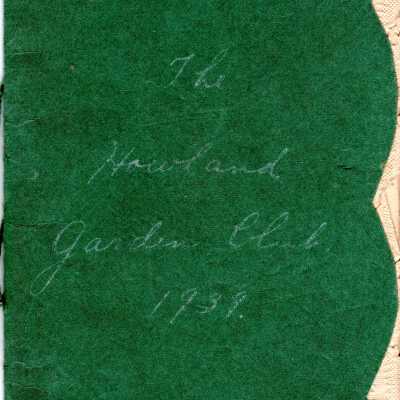 The
Howland
Garden Club.
1939.